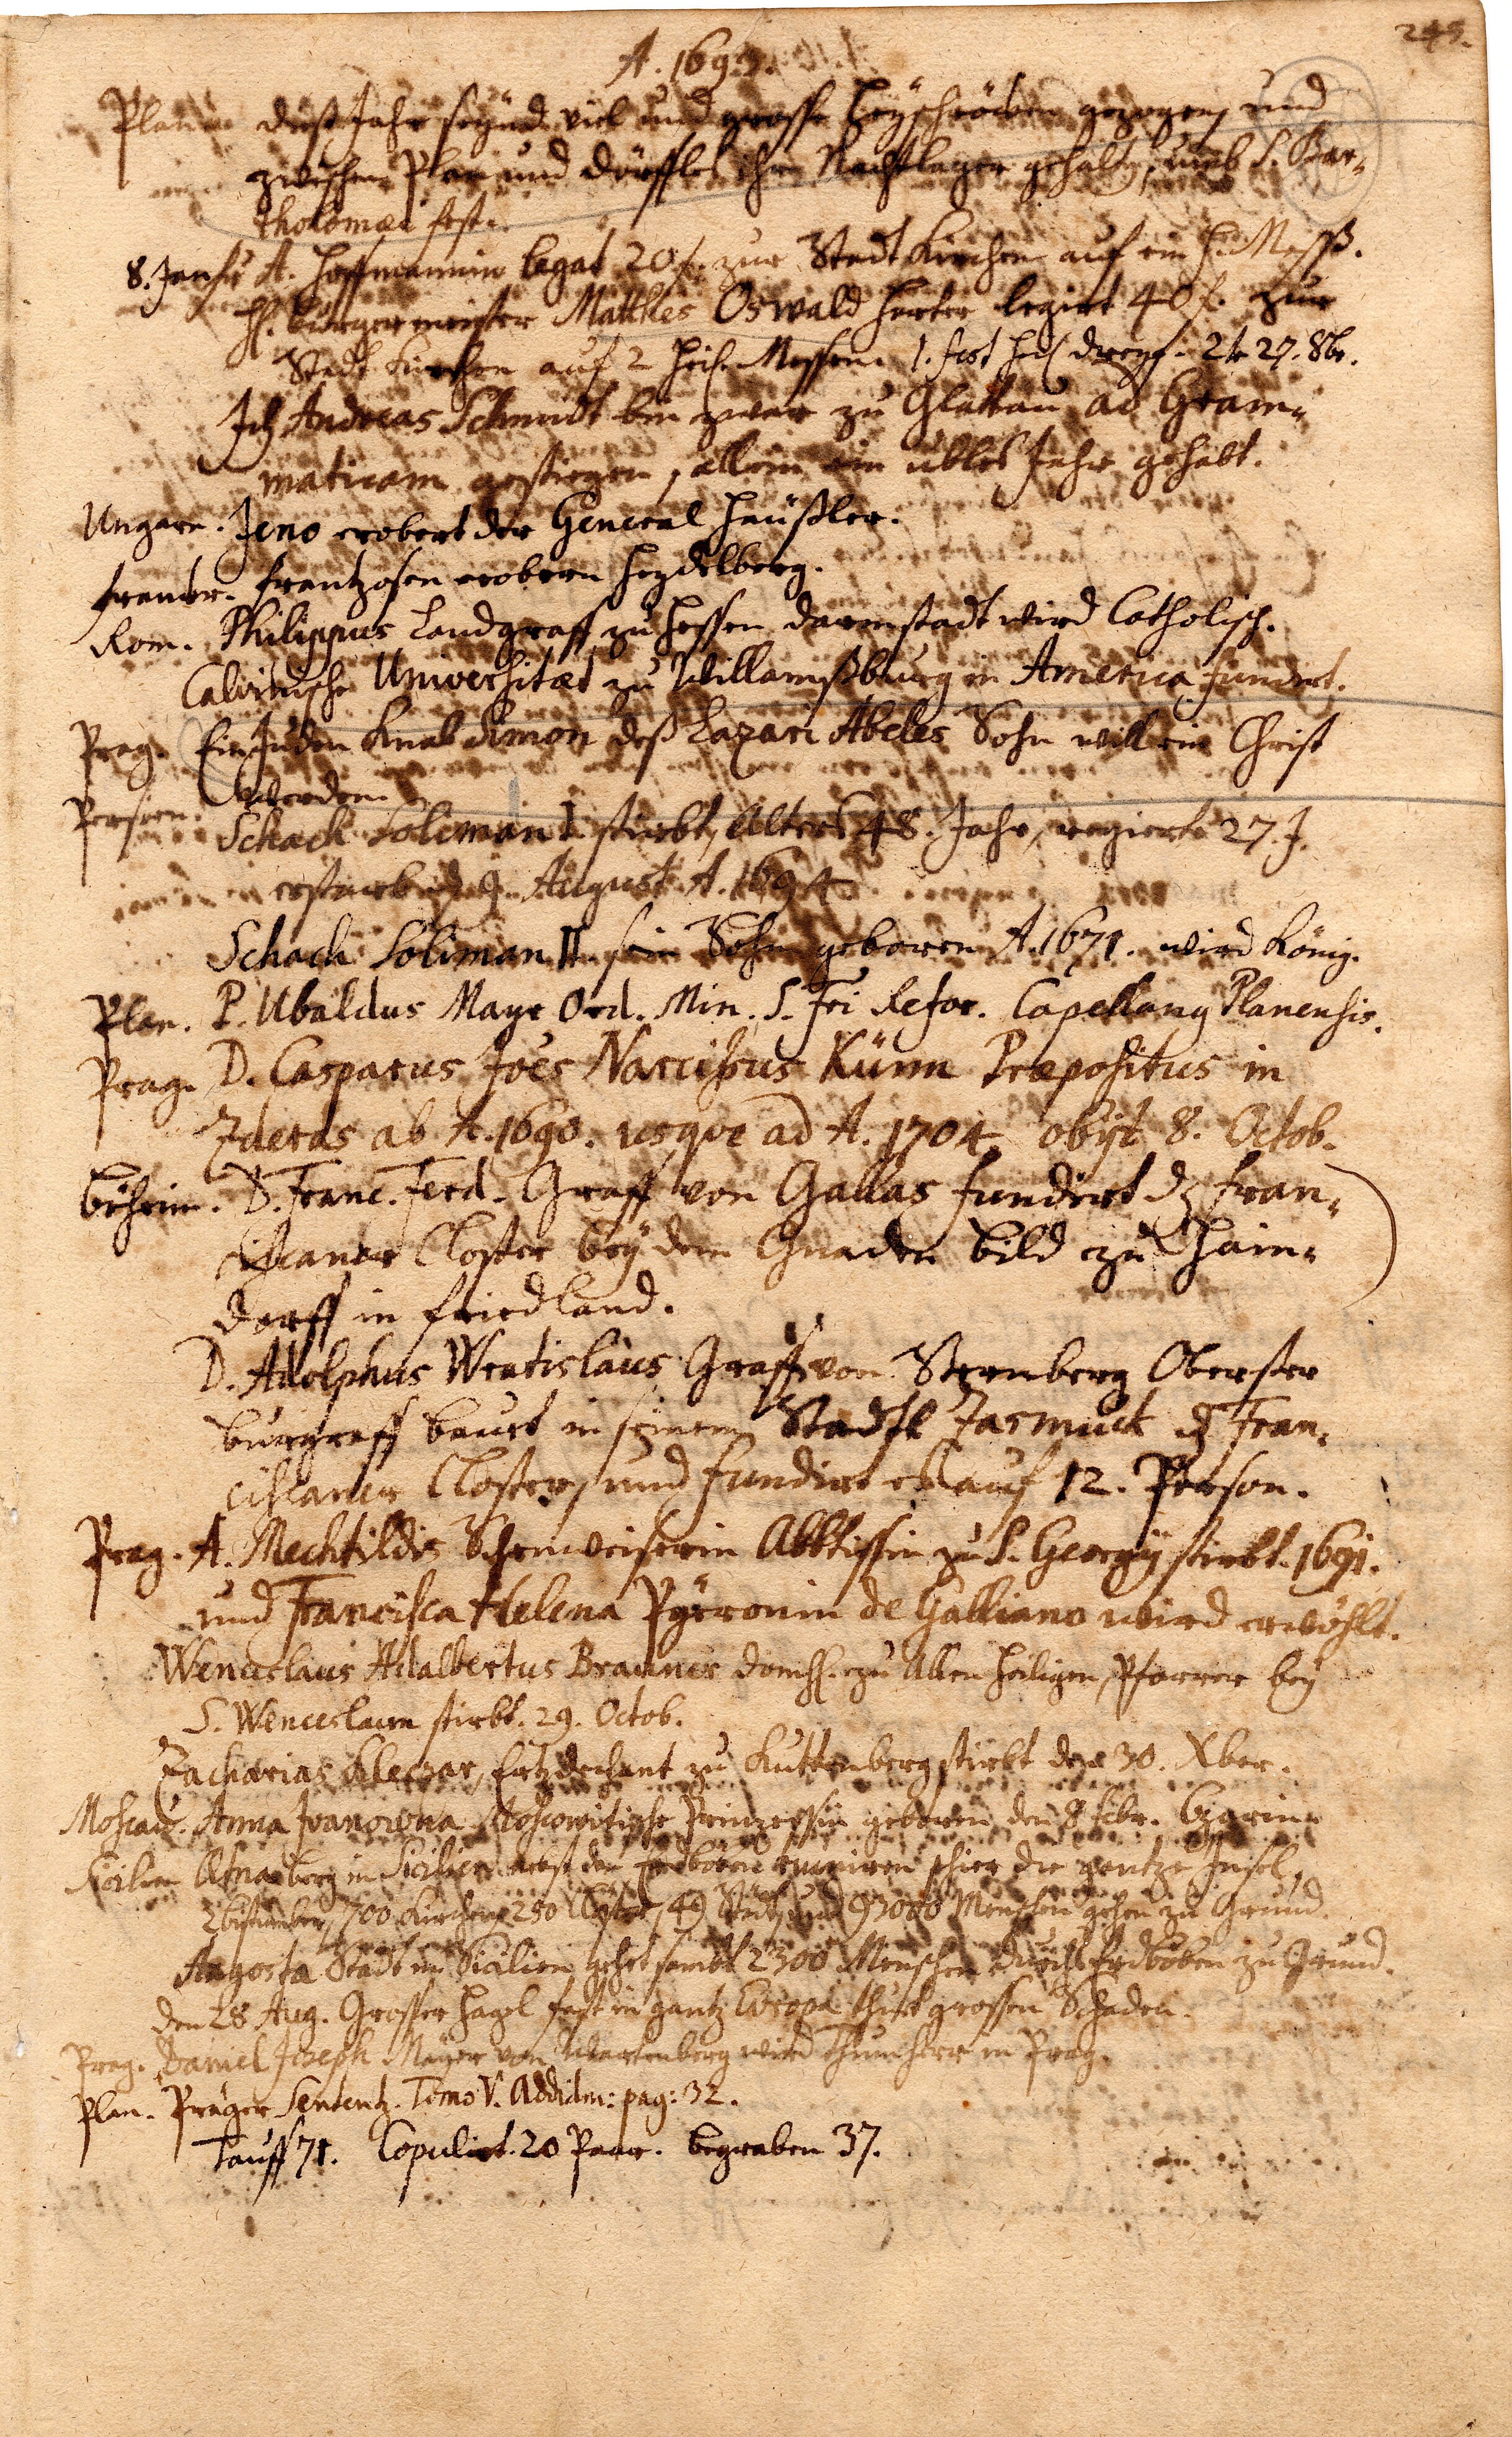 245.
A. 1693.
Plan. diess Jahr seynd viel und grosse Heyschröcken gezogen, und
zwischen Plan und Dörffles ihr Nachtlager gehalten, umb S. Bar-
tholomæi fest.
8. Jan. A. Hoffmannin legat 20 f. zur Stadt Kirchen auf ein H. Mess.
H. Burgermeister Matthes Oswald Harter legirt 40 f. zur
Stadt Kirchen auf 2 Heil. Messen. 1. fest Heil. dreyf. 2te 27. 8br.
Ich Andreas Schmidt bin zwar zu Glattau ad Gram-
maticam gestiegen, allein ein übles Jahr gehabt.
Ungarn. Jeno erobert der General Häußler.
Frankr. Frantzosen erobern Heydelberg.
Rom. Philippus Landgraff zu Hessen Darmstadt wird Catholisch.
Calvinische Universitæt zu Willamssburg in America fundirt.
Prag. Ein Juden Knab Simon dess Lazari Abeles Sohn will ein Christ
werden.
Persien. Schach Soliman I stirbt, Alters 48. Jahr, regierte 27. J.
er starb d. 9. August A. 1694
Schach Soliman II sein Sohn geboren A. 1671. wird König.
Plan. P. Ubaldus Mayr Ord. Min. S. Fri Refor. Capellang Planensis.
Prag. D. Casparus Joes Narcissus Künn Præpositus in
Zderas ab A. 1690. usque ad A. 1704 obijt 8. Octob.
Böheim. D. Franc. Ferd. Graff von Gallas fundirt dz Fran-
ciscaner Closter bey dem Gnaden Bild zu Hain-
dorff in Friedland.
D. Adolphus Wratislaus Graff von Sternberg Oberster
Burggraff bauet in seinem Stadtl Zasmuck dz Fran-
ciscaner Closter, und fundirt es auf 12. Person.
Prag. A. Mechtildis Schenweiserin Abbtissin zu S. Georgij stirbt. 1691.
und Francisca Helena Pyeronin de Galliano wird erwöhlt.
Wenceslaus Adalbertus Brauner Domh. zu Allen Heiligen, Pfarrer bey
S. Wenceslaum stirbt. 29. Octob.
Zacharias Kleczar, Ertzdechant zu Kuttenberg stirbt den 30. Xber.
Moscau. Anna Ivanowna Moscowitische Prinzessin geboren den 8 febr. Czarin
Sicilien Ætnaberg in Sicilien nebst den Erdböben ruiniren schier die gantze Insel,
2 Bistumber, 700 Kirchen, 250 Clöster, 49 Städt, und 93000 Menschen gehen zu Grund.
Angosta Stadt in Sicilien gehet sambt 2300 Menschen durchs Erdböben zu Grund.
den 28 Aug. Grosser Hagel fast in gantz Europa thuet grossen Schaden.
Prag. Daniel Joseph Mayer von Wartenberg wird Thumherr in Prag.
Plan. Präger Sententz. Tomo V. Additm: pag: 32.
Tauff 71. Copulirt. 20 Paar. begraben 37.